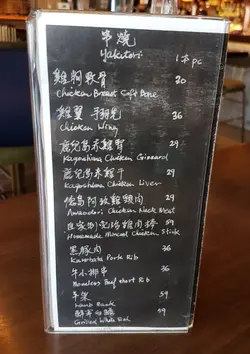 串燒
Yakitori 1 pc
雞胸軟骨 30
Chicken Breast Soft Bone
雞翼 手羽先 36
Chicken Wing
鹿兒島赤雞腎 29
Kagoshima Chicken Gizzard
鹿兒島赤雞肝 29
Kagoshima Chicken Liver
德島阿波雞頸肉 29
Awaodori Chicken Neck Meat
自家制 雞肉棒 39
Homemade Minced Chicken Stick
黑豚肉 36
Kurobuta Pork Rib
牛小排串 36
Boneless Beef Short Rib
羊架 59
Lamb Rack
59
Grilled Whole